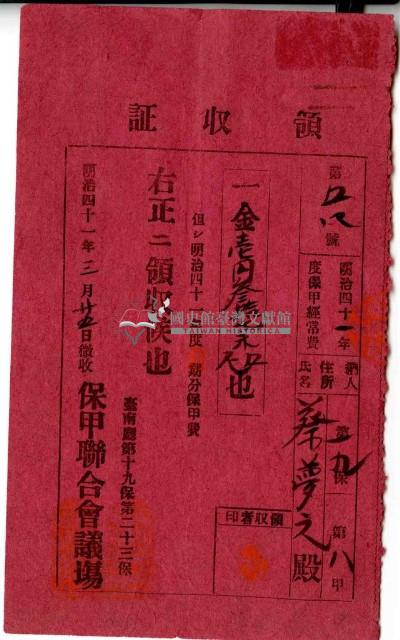 領收証
第 號
明治四十一年
度保甲經常費
納人
住所
氏名
第九保 第八甲
蔡夢元殿
一金壱円叁 也
但シ明治四十 度 期分保甲費
右正ニ領收候也
臺南廳第十九保第二十三保
明治四十一年三月廿五日徵收
保甲聯合會議場
領收者印
國史館臺灣文獻館
TAIWAN HISTORICA